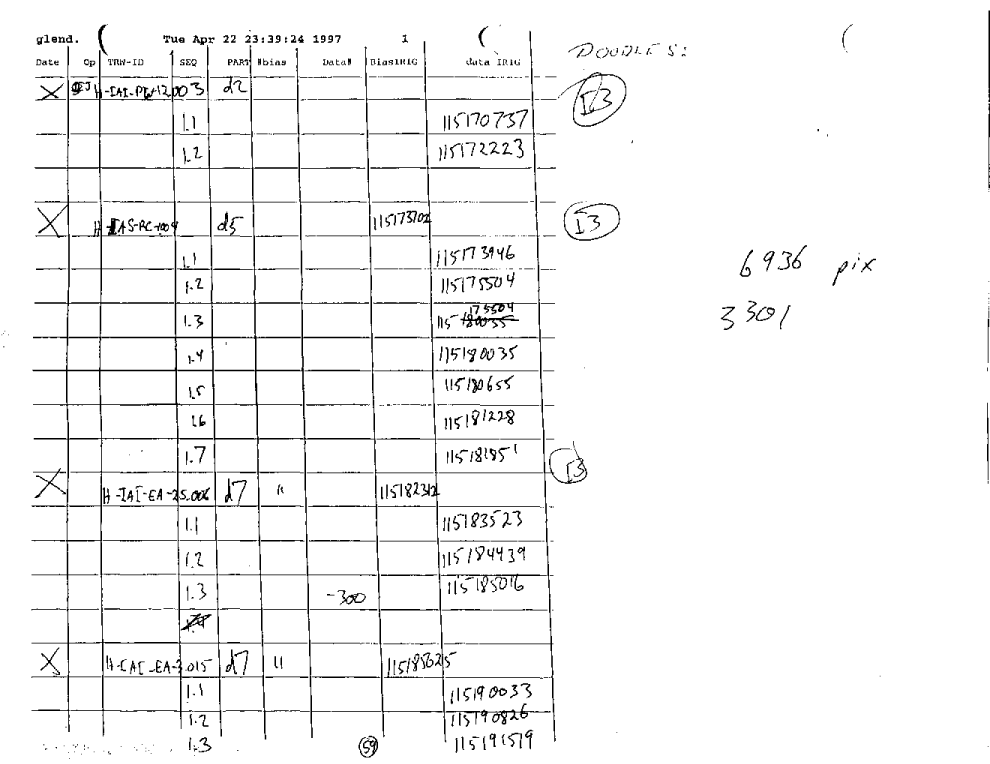 glend. Tue Apr 22 23:39:24 1997 1
DOODLES:
Date Op TRW-ID SEQ PART #bias Data# BiasIRIG data IRIG
X H-IAI-PG-12.003 d2
I3
1.1 115170737
1.2 115172223
X H-IAS-RC-1009 d5 115173702
I3
1.1 115173946
6936 pix
1.2 115175504
3301
1.3 115180035 175504
1.4 115180035
1.5 115180655
1.6 115181228
1.7 115181851
I3
X H-IAI-EA-25.006 d7 11 115182312
1.1 115183523
1.2 115184439
1.3 -300 115185016
X H-IAI-EA-3.015 d7 11 115185625
1.1 115190033
1.2 115190826
1.3 115191519
59